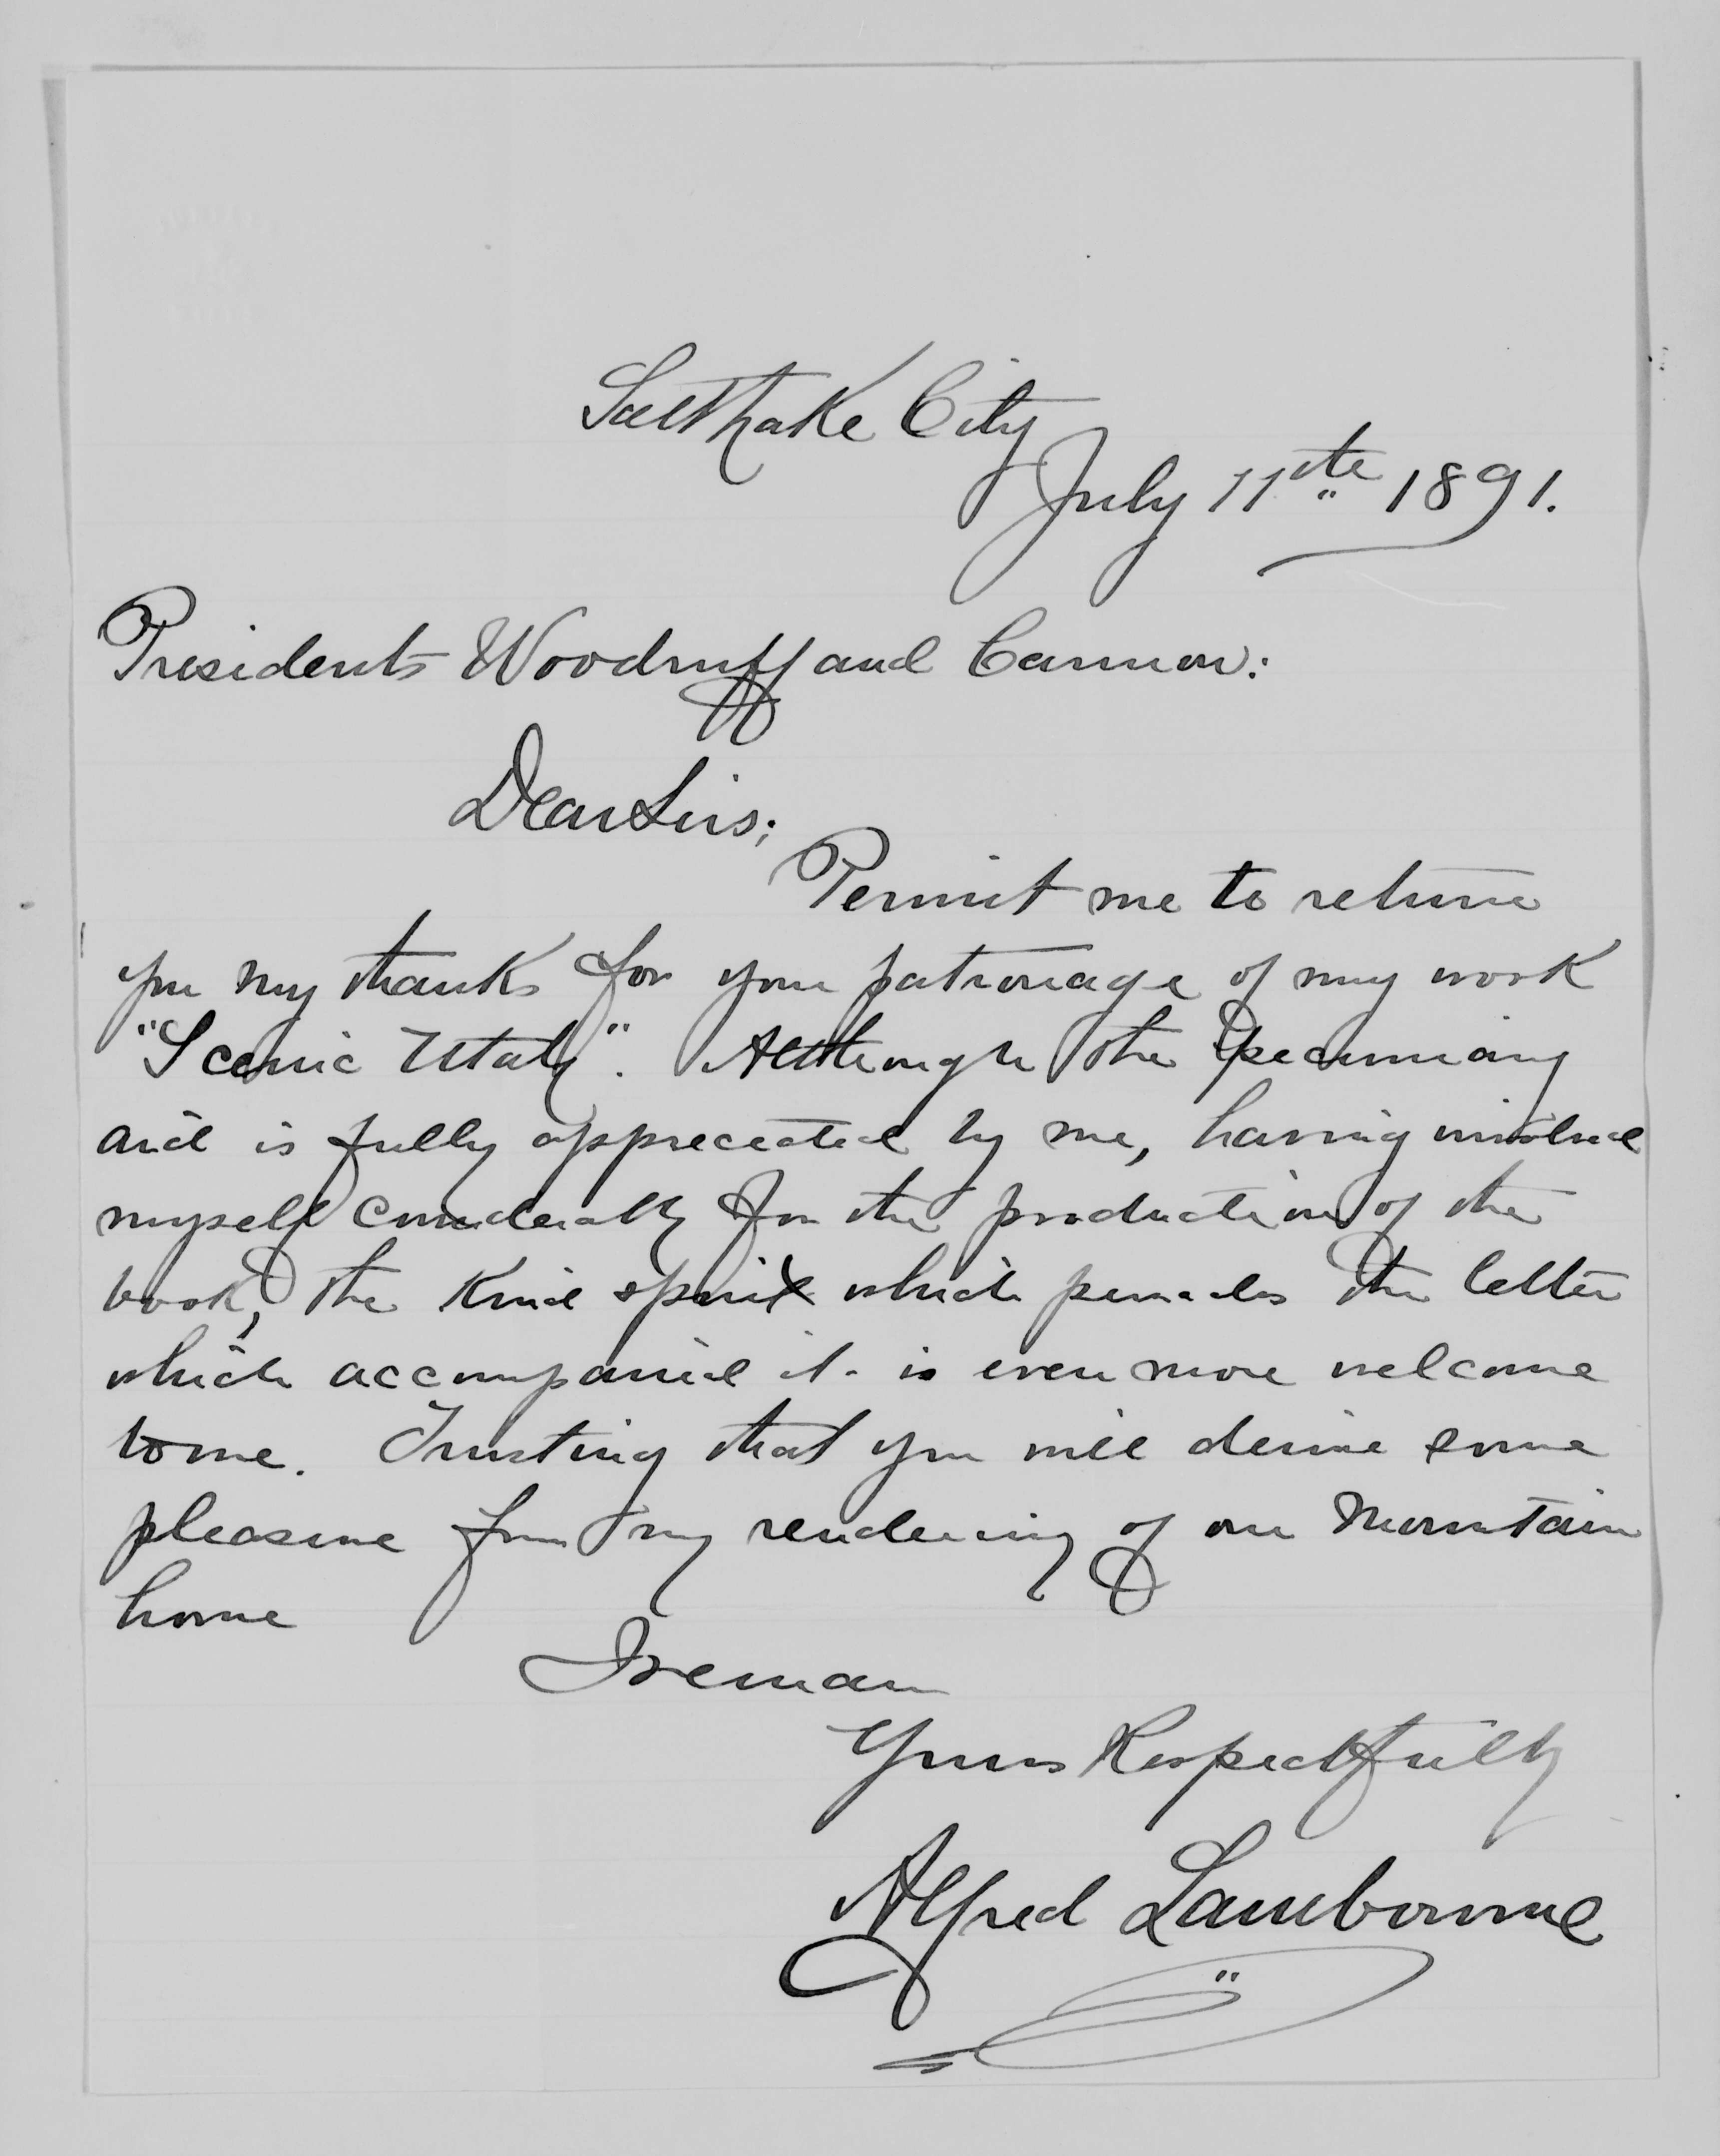 Salt Lake City
July 11th 1891.
Presidents Woodruff and Cannon:
Dear Sirs;
Permit me to return
you my thanks for your patronage of my work
"Scenic Utah". Although the pecuniary
aid is fully appreciated by me, having involved
myself considerably for the production of the
book, the kind spirit which pervades the letter
which accompanied it is even more welcome
to me. Trusting that you will derive some
pleasure from my rendering of our Mountain
home
I remain
Yours Respectfully
Alfred Lambourne